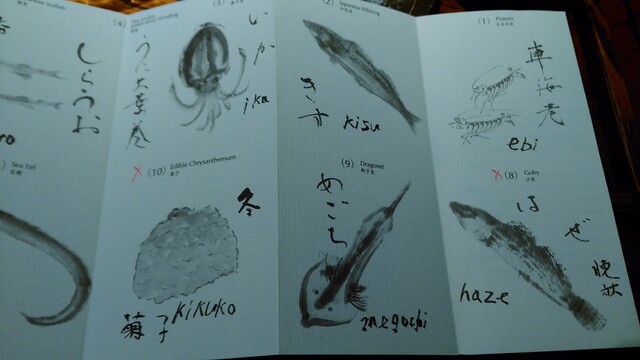 (1) Prawn
車海老
ebi
(2) Japanese Whiting
きす
kisu
(3)
いか
ika
うに大葉巻
(4)
しらうお
ro
X (8) Goby
はぜ
晩秋
haze
(9) Dragonet
めごち
megochi
X (10) Edible Chrysanthemum
菊子
冬
菊子
KiKUKO
Sea Eel